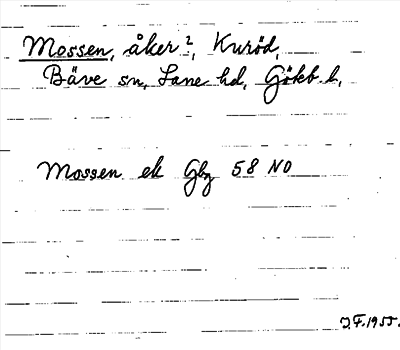 Mossen, åker ?, Kuröd,
Bäve sn, Lane hd, Göteb. l,
Mossen ek Gbg 58 NO
J.F. 1955.